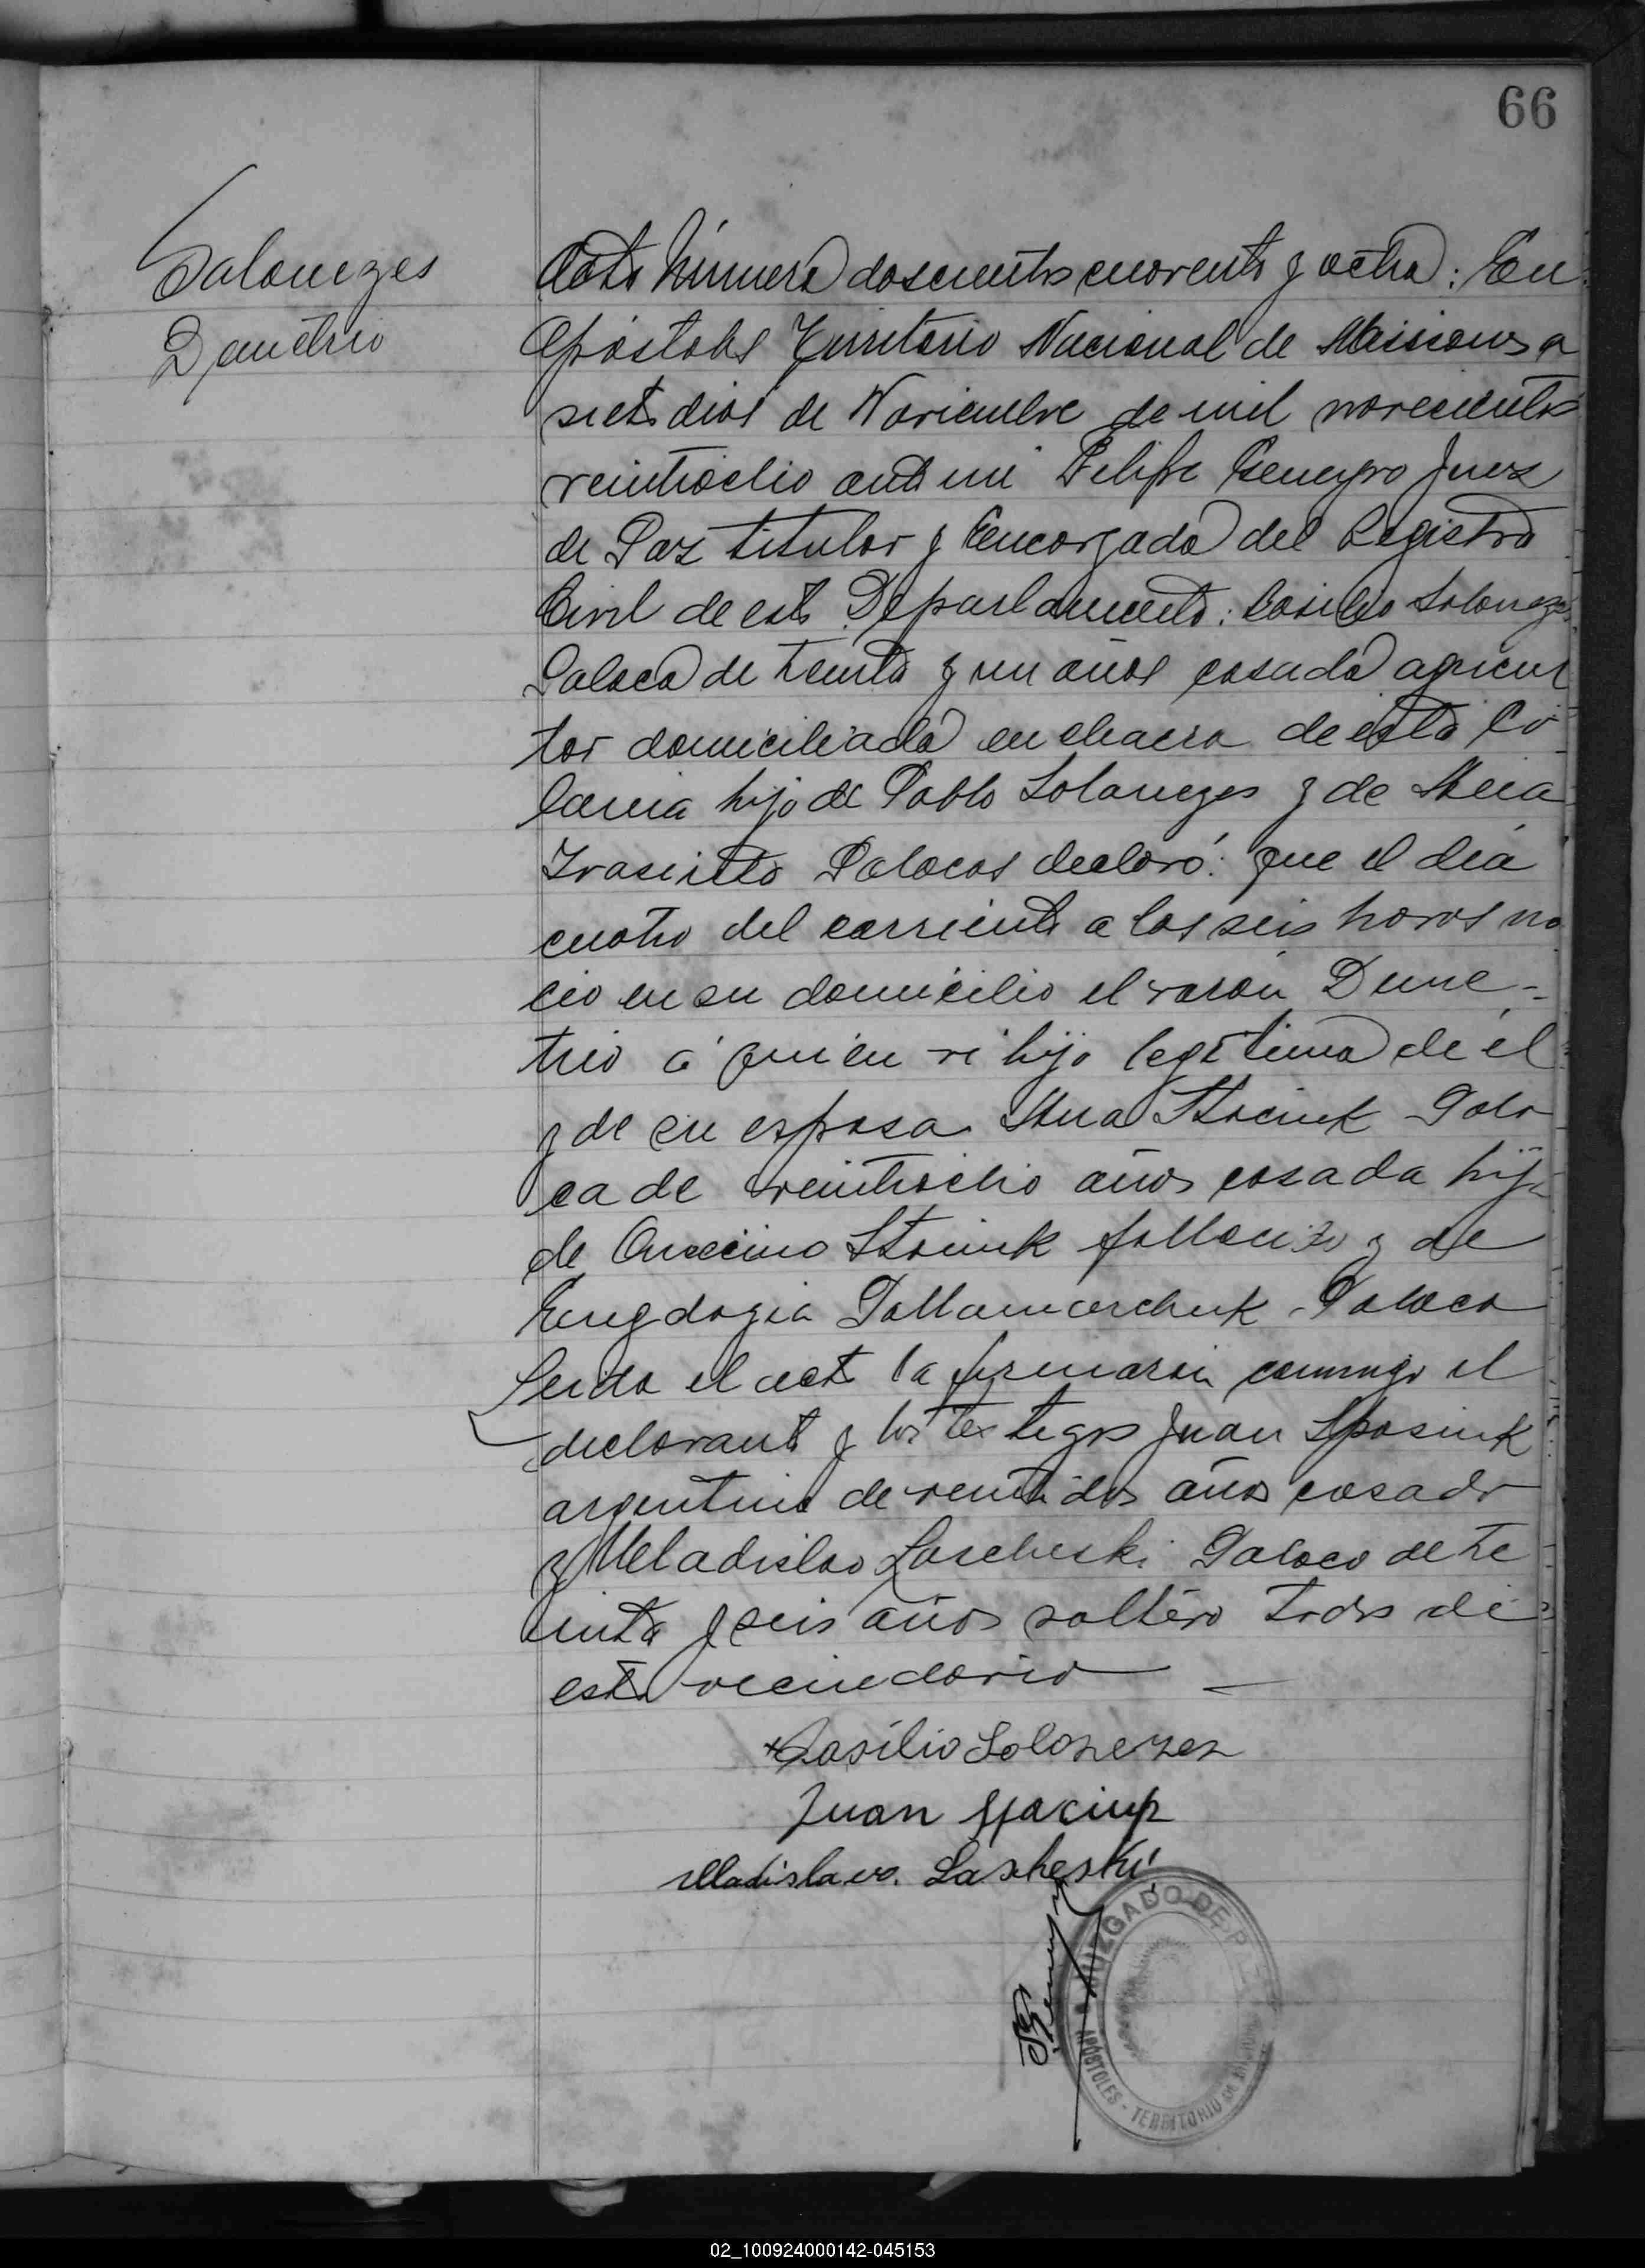 66
Solonezes
Demetrio
Acta Número doscientos cuarenta y ocho: En
Apóstoles Territorio Nacional de Misiones a
siete dias de Noviembre de mil novecientos
veintiocho ante mi Felipe Juez
de Paz titular y Encargado del Registro
Civil de este Departamento: Basilio Solonezes
Polaco de treinta y un años casado agricul
tor domiciliado en chacra de esta Co
lonia hijo de Pablo Solonezes y de
Polacos declaró: que el dia
cuatro del corriente a las seis horas na
ció en su domicilio el varón Deme-
trio á quien vi hijo legitimo de él
y de su esposa Ana Stociuk Pola
ca de veintiocho años casada hija
de Stociuk fallecido y de
Polaca
Leida el acta la firmaron conmigo el
declarante y los testigos Juan
argentino de veintidos años casado
y Uladislao Lascheski Polaco de tre
inta y seis años soltero todos de
este vecindario
Basilio Solonezez
Juan
Uladislavo. Lasheski
JUZGADO DE PAZ
APÓSTOLES - TERRITORIO DE MISIONES
02_100924000142-045153